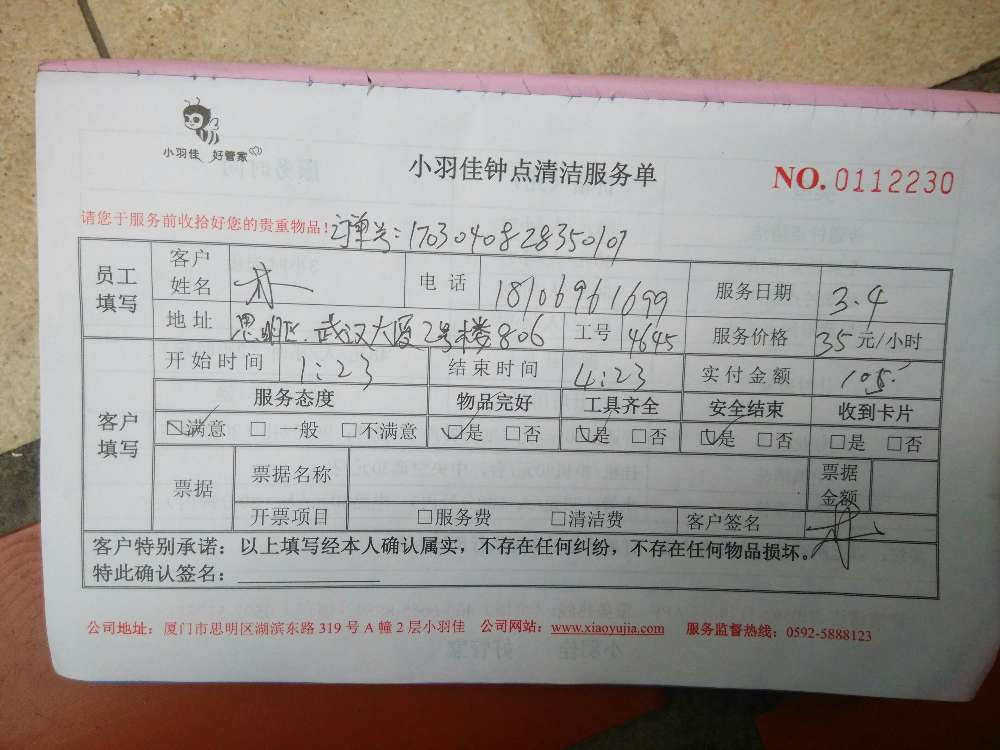 小羽佳 好管家
小羽佳钟点清洁服务单
NO.0112230
请您于服务前收拾好您的贵重物品！订单号：1703040828350107
员工填写 客户姓名 电话 18106961699 服务日期 3.4
地址 思明区.武汉大厦2号楼806 工号 4645 服务价格 35元/小时
客户填写 开始时间 1:23 结束时间 4:23 实付金额 105.
服务态度 物品完好 工具齐全 安全结束 收到卡片
☑满意 □一般 □不满意 ☑是 □否 ☑是 □否 ☑是 □否 □是 □否
票据 票据名称 票据金额
开票项目 □服务费 □清洁费 客户签名
客户特别承诺：以上填写经本人确认属实，不存在任何纠纷，不存在任何物品损坏。
特此确认签名：
公司地址：厦门市思明区湖滨东路319号A幢2层小羽佳 公司网站：www.xiaoyujia.com 服务监督热线：0592-5888123